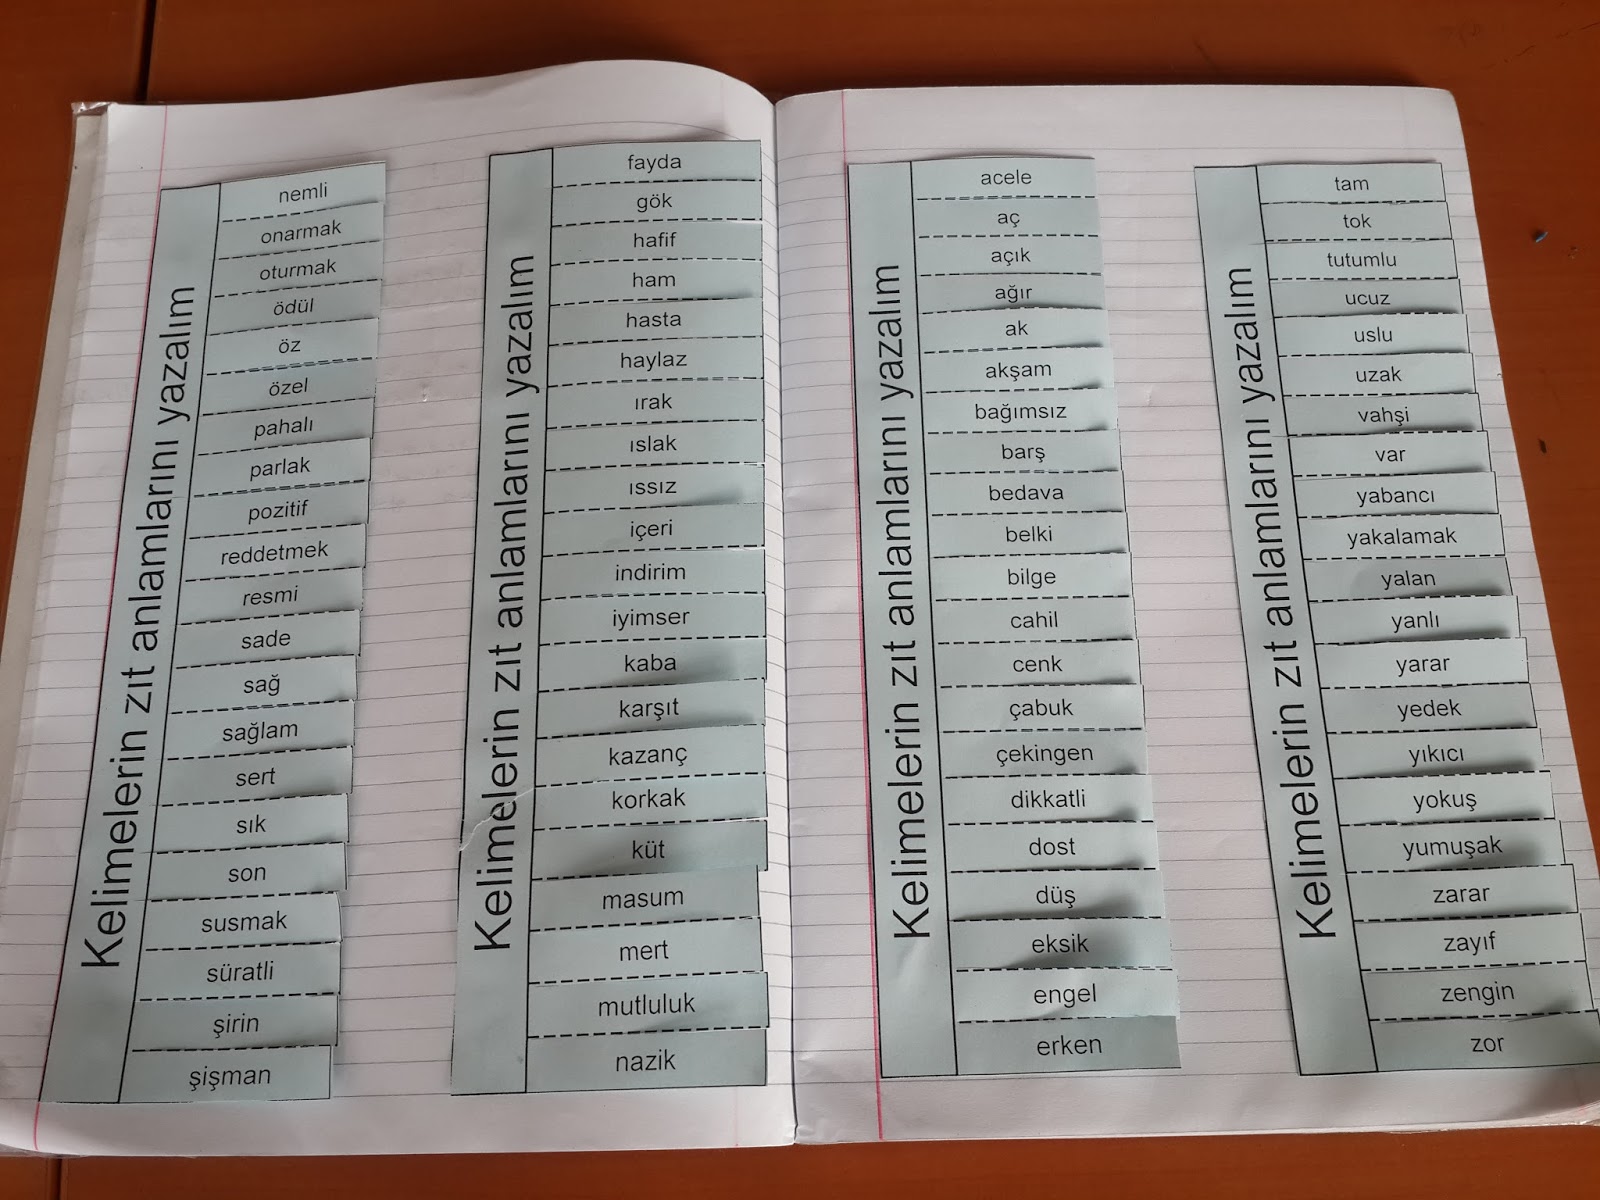 Kelimelerin zıt anlamlarını yazalım
nemli
onarmak
oturmak
ödül
öz
özel
pahalı
parlak
pozitif
reddetmek
resmi
sade
sağ
sağlam
sert
sık
son
susmak
süratli
şirin
şişman
Kelimelerin zıt anlamlarını yazalım
fayda
gök
hafif
ham
hasta
haylaz
ırak
ıslak
ıssız
içeri
indirim
iyimser
kaba
karşıt
kazanç
korkak
küt
masum
mert
mutluluk
nazik
Kelimelerin zıt anlamlarını yazalım
acele
aç
açık
ağır
ak
akşam
bağımsız
barş
bedava
belki
bilge
cahil
cenk
çabuk
çekingen
dikkatli
dost
düş
eksik
engel
erken
Kelimelerin zıt anlamlarını yazalım
tam
tok
tutumlu
ucuz
uslu
uzak
vahşi
var
yabancı
yakalamak
yalan
yanlı
yarar
yedek
yıkıcı
yokuş
yumuşak
zarar
zayıf
zengin
zor